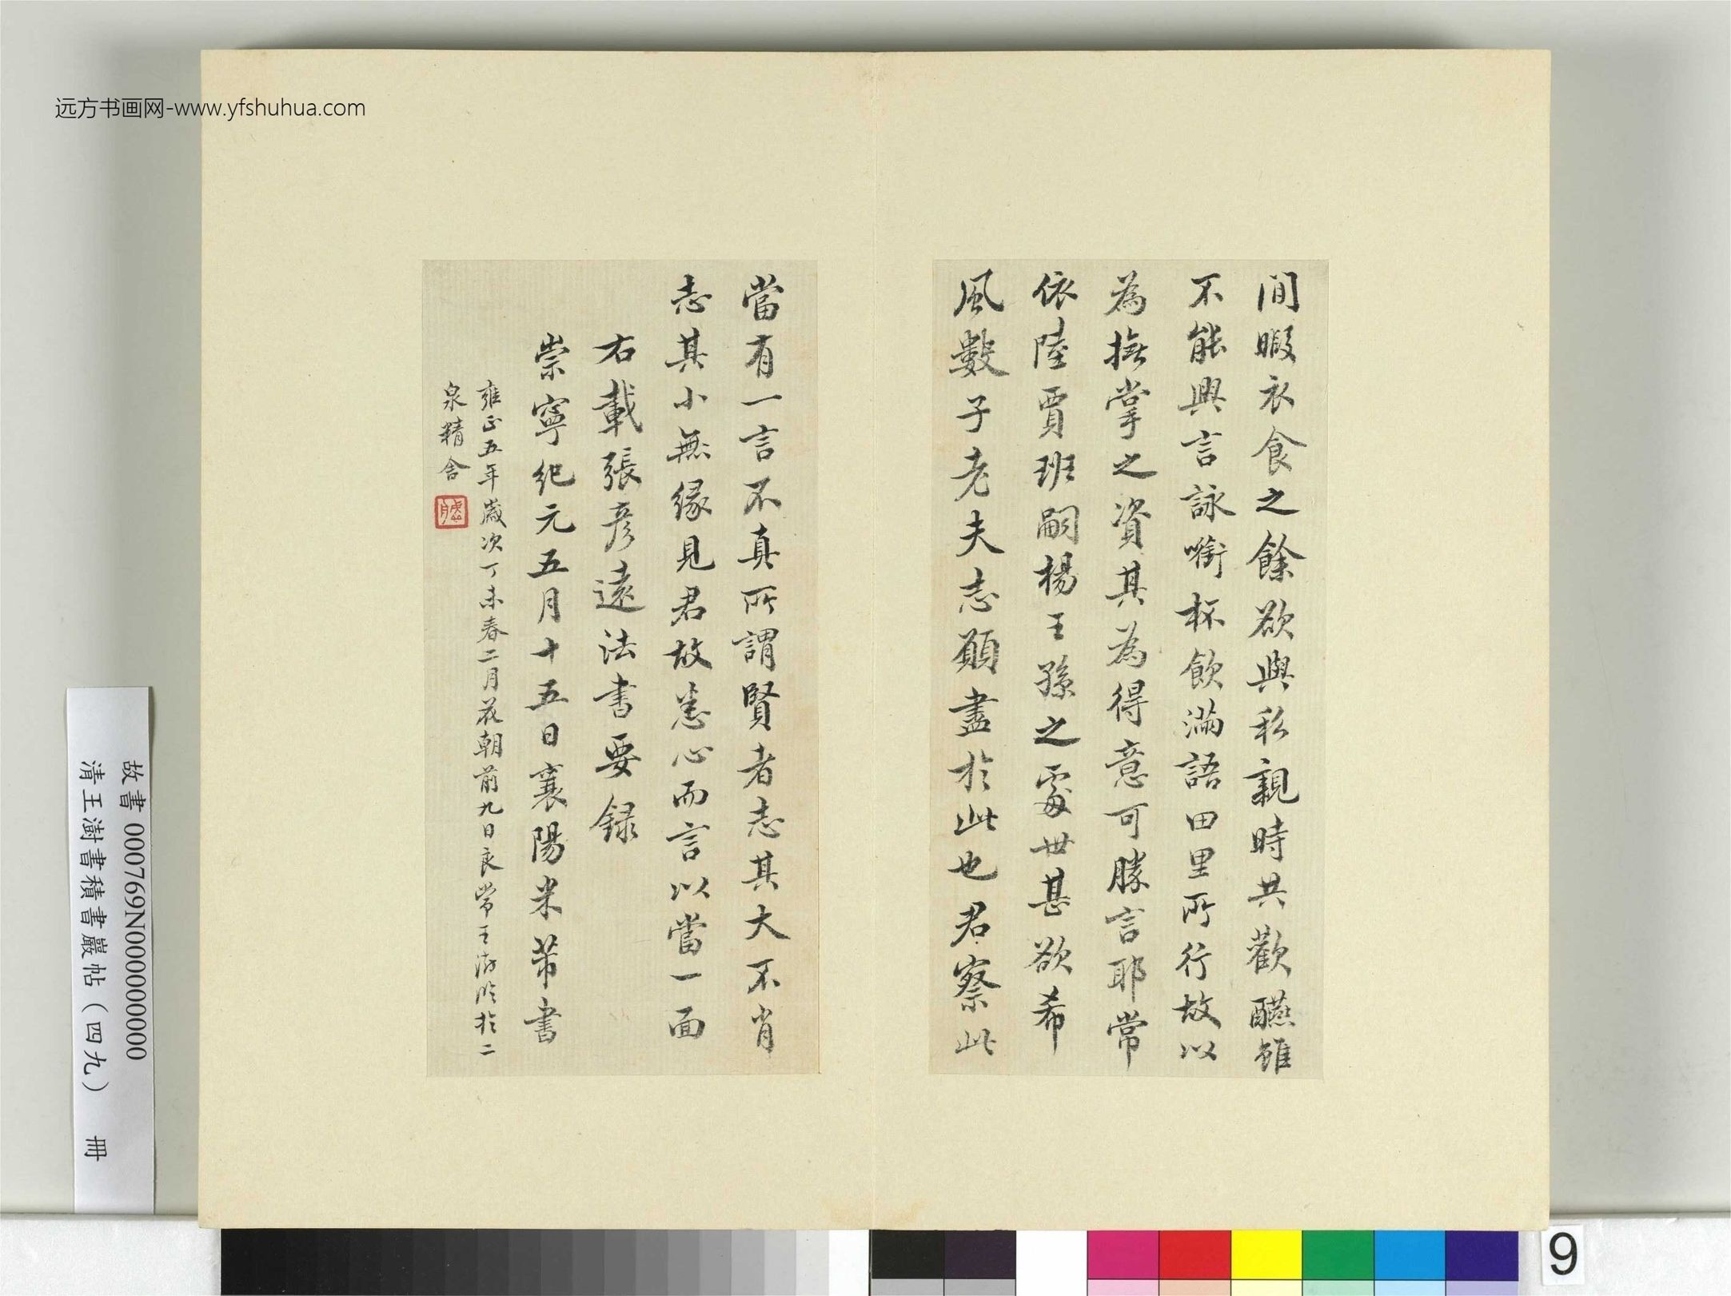 远方书画网-www.yfshuhua.com
閒暇衣食之餘欲與私親時共歡醼雖
不能興言詠嘯銜杯飲滿語田里所行故以
為撫掌之資其為得意可勝言耶常
依陸賈班嗣楊王孫之處世甚欲希
風數子老夫志願盡於此也君察此
當有一言不真所謂賢者志其大不肖
志其小無緣見君故悉心而言以當一面
右載張彥遠法書要録
崇寧紀元五月十五日襄陽米芾書
雍正五年歲次丁未春二月花朝前九日良常王澍臨於二
泉精舍
故書 000769N000000000
清王澍書積書巖帖(四九) 冊
9